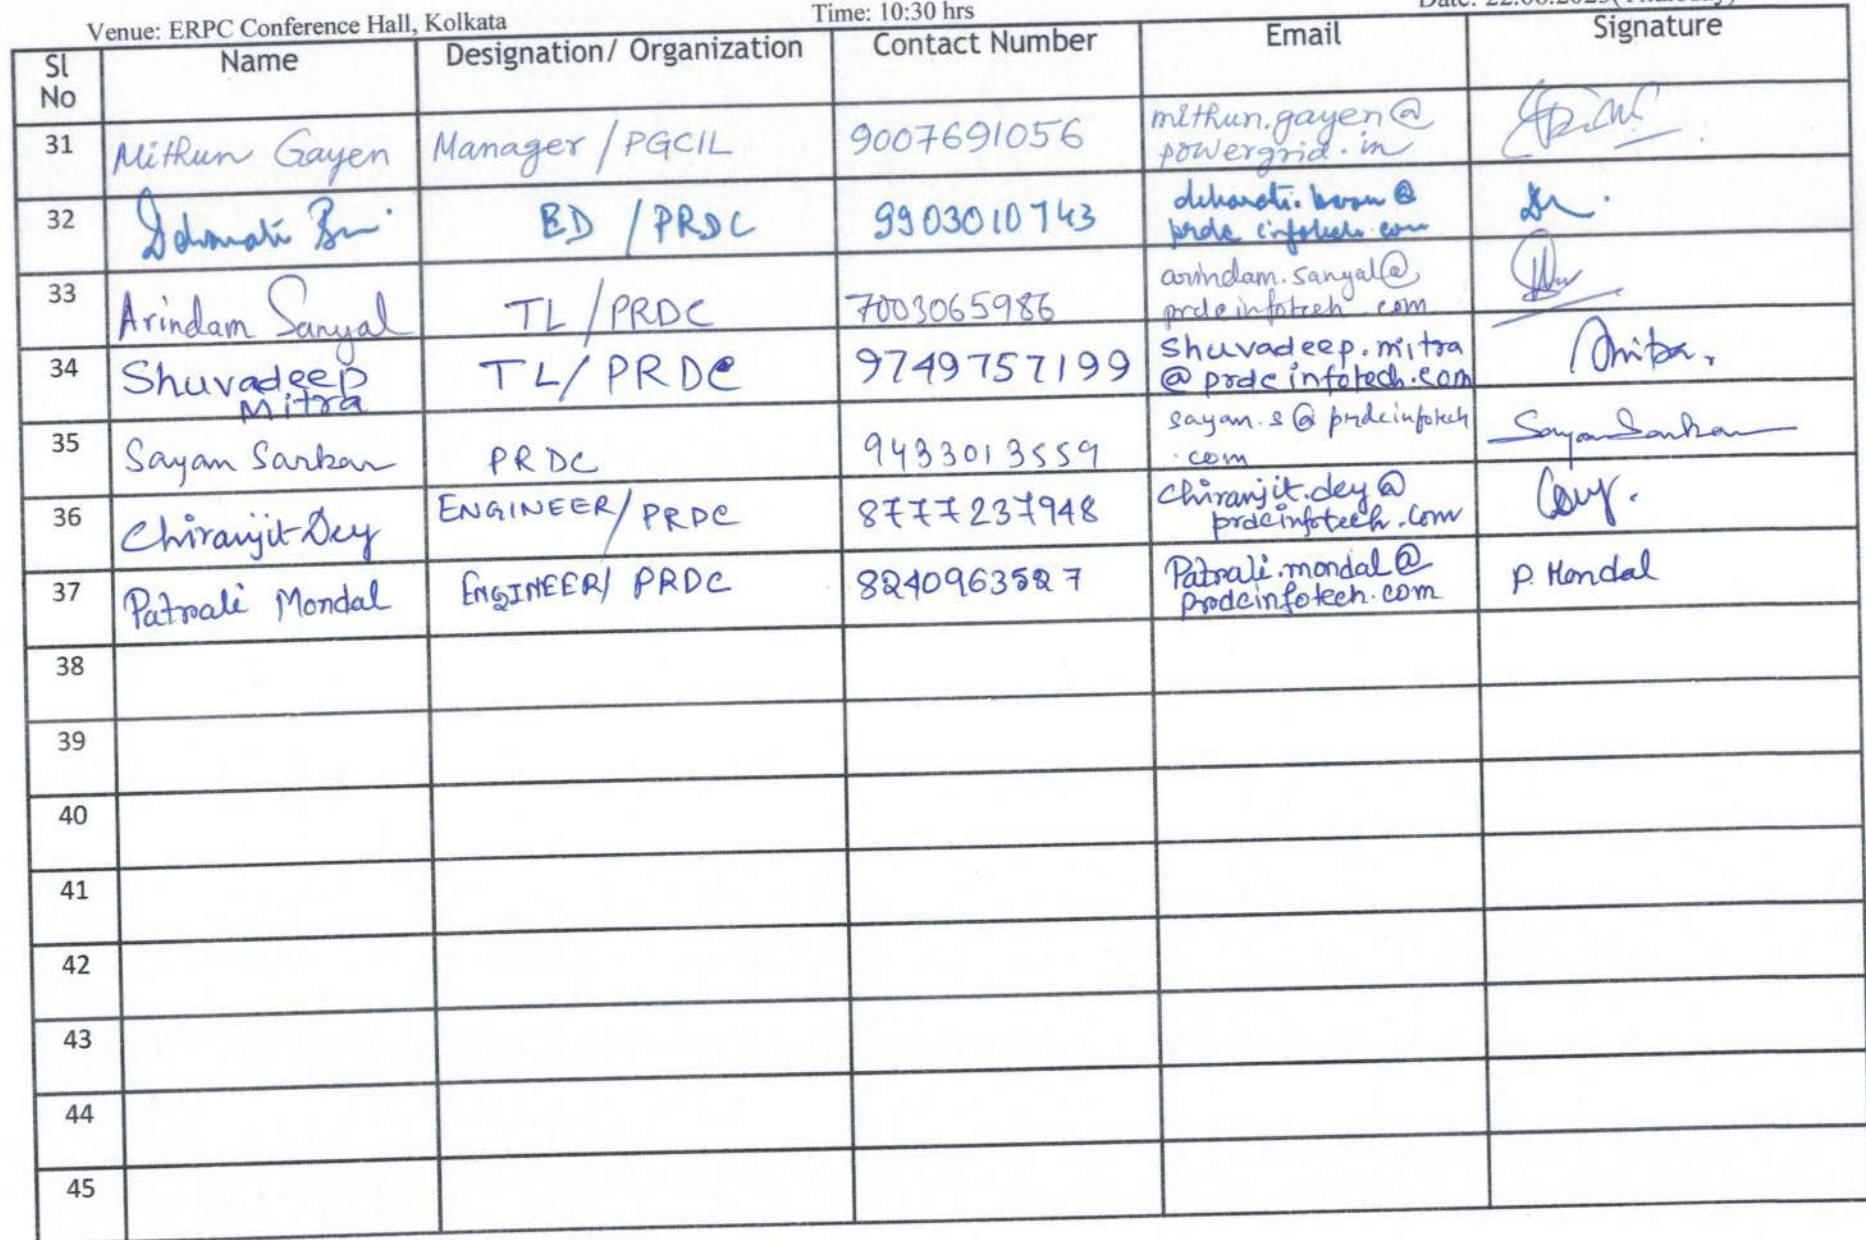 Venue: ERPC Conference Hall, Kolkata Time: 10:30 hrs
Sl No Name Designation/ Organization Contact Number Email Signature
31 Mithun Gayen Manager / PGCIL 9007691056 mithun.gayen@
powergrid.in
32 / PRDC 9903010743
33 Arindam Sanyal TL / PRDC 7003065986 arindam.sanyal@
prdcinfotech.com
34 Shuvadeep TL/ PRDC 9749757199 Shuvadeep.mitra
Mitra @ prdcinfotech.com
35 Sayan Sarkar PRDC 9433013559 sayan.s@prdcinfotech
.com Sayan Sarkar
36 Chiranjit Dey ENGINEER/ PRDC 8777237948 Chiranjit.dey@
prdcinfotech.com
37 Patrali Mondal ENGINEER/ PRDC 8240963527 Patrali.mondal@ P. Mondal
prdcinfotech.com
38
39
40
41
42
43
44
45